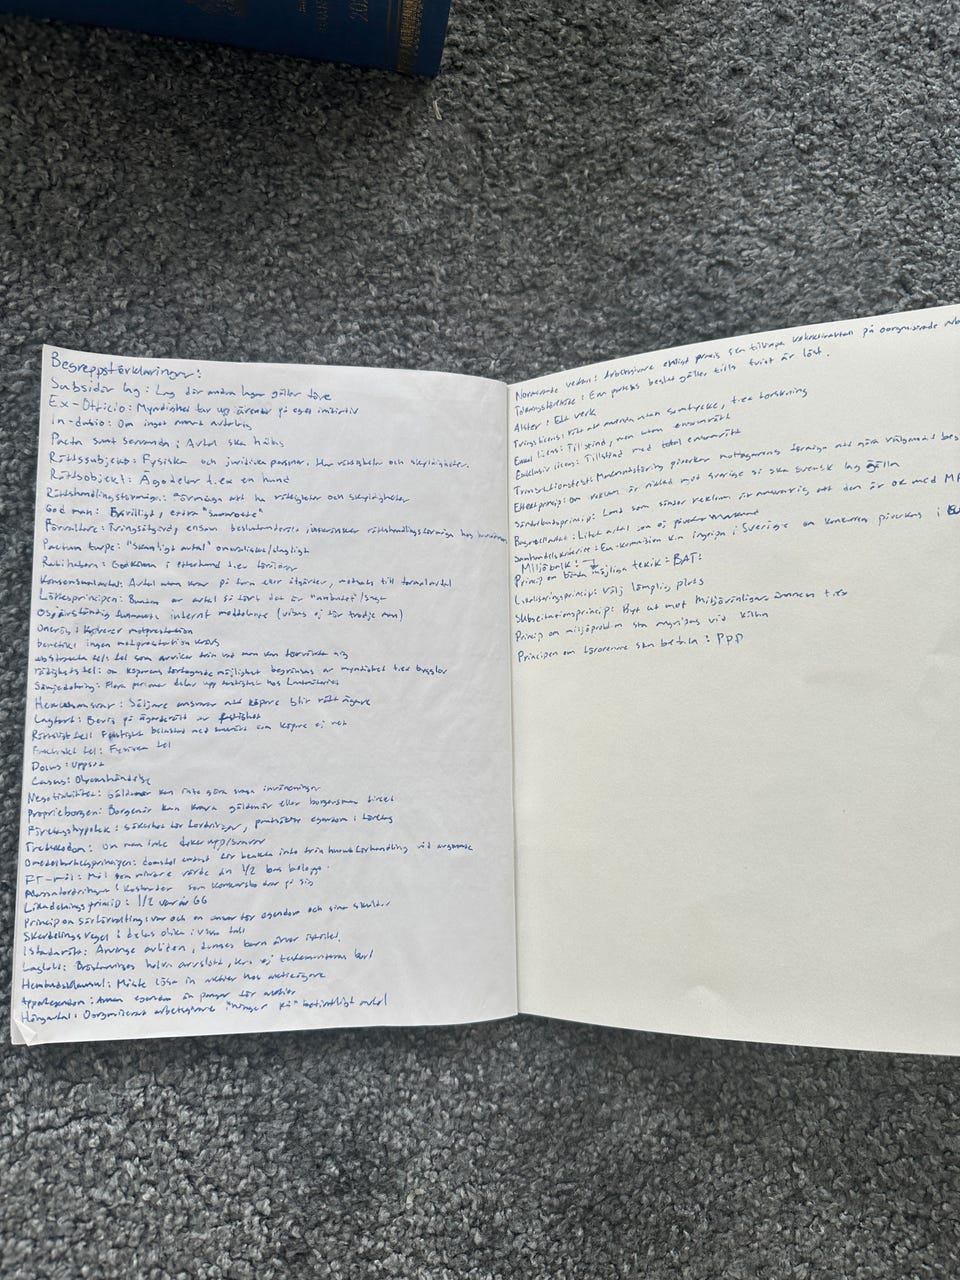 Begreppsförklaringar:
Subsidiär lag: Lag där andra lagar gäller före
Ex-Officio: Myndighet tar upp ärenden på eget initiativ
In-dubio: Om inget annat avtalats
Pacta sunt servanda: Avtal ska hållas
Rättssubjekt: Fysiska och juridiska personer. Har rättigheter och skyldigheter.
Rättsobjekt: Ägodelar t.ex en hund
Rättshandlingsförmåga: Förmåga att ha rättigheter och skyldigheter
God man: Frivilligt, extra
Förvaltare: Tvingsåtgärd, ensam beslutanderätt, inskränker rättshandlingsförmåga hos
Pactum turpe: "Skamligt avtal" omoraliskt/olagligt
Ratihabera: Godkänn i efterhand t.ex förälder
Konsensualavtal: Avtal utan krav på form eller åtgärder, motsats till formalavtal
Löftesprincipen: Bunden av avtal så fort det är
internt meddelande (visas ej för tredje man)
Onerös: Kräver motprestation
Benefik: ingen motprestation krävs
Abstrakta fel: fel som avviker från vad man kan förvänta sig
Rådighetsfel: om köparens förfogande möjlighet begränsas av myndighet t.ex bygglov
Sämjedelning: Flera personer delar upp fastighet hos Lantmäteriet
Hemulsansvar: Säljare ansvarar att köpare blir rätt ägare
Lagfart: Bevis på äganderätt av fastighet
Rättsligt fel: Fastighet belastad med som köpare ej vet
Faktiskt fel: Fysiska fel
Dolus: Uppsåt
Casus: Olyckshändelse
Negotiabilitet: Gäldenär kan inte göra svaga invändningar
Proprieborgen: Borgenär kan kräva gäldenär eller borgensman direkt
Företagshypotek: säkerhet för fordringar, egendom i företag
Tredskodom: Om man inte dyker upp/svarar
Omedelbarhetsprincipen: domstol endast får beakta info från huvudförhandling vid avgörande
FT-mål: Mål som mindre värde än 1/2 bas belopp.
Massafordringar: Kostnader som konkursbo drar på sig
Likadelningsprincip: 1/2 var av GG
Princip om särförvaltning: var och en ansvar för egendom och sina skulder
Skevdelningsregel: delas olika i vissa fall
Istadarätt: Arvinge avliden, dennes barn ärver istället.
Laglott: Bröstarvinges halva arvslott, kan ej testamenteras bort
Hembudsklausul: Måste lösa in aktier hos aktieägare
Apportegendom: Annan egendom än pengar för aktier
Hängavtal: Oorganiserat arbetsgivare "hänger på" befintligt avtal
Normerande verkan: Arbetsgivare enligt praxis ska tillämpa kollektivavtal på oorganiserade
Tolkningsföreträde: Ena partens beslut gäller tills tvist är löst.
Alster: Ett verk
Tvångslicens: rätt att använda utan samtycke, t.ex forskning
Enkel licens: Tillstånd, men utan ensamrätt
Exklusiv licens: Tillstånd med total ensamrätt
Transaktionstest: Marknadsföring påverkar mottagarens förmåga att göra välgrundat
Effektprincip: om reklam är riktad mot Sverige så ska svensk lag gälla
Sändarlandsprincip: Land som sänder reklam är ansvarig att den är OK med
Bagatellavtal: Litet avtal som ej påverkar marknad
Samhandelskriteriet: Eu-kommission kan ingripa i Sverige om konkurrens påverkas i
Miljöbalk:
Princip om bästa möjliga teknik: BAT:
Lokaliseringsprincip: Välj lämplig plats
Substitutionsprincip: Byt ut mot miljövänligare ämnen t.ex
Princip om miljöproblem ska angripas vid källan
Principen om förorenare ska betala: PPP